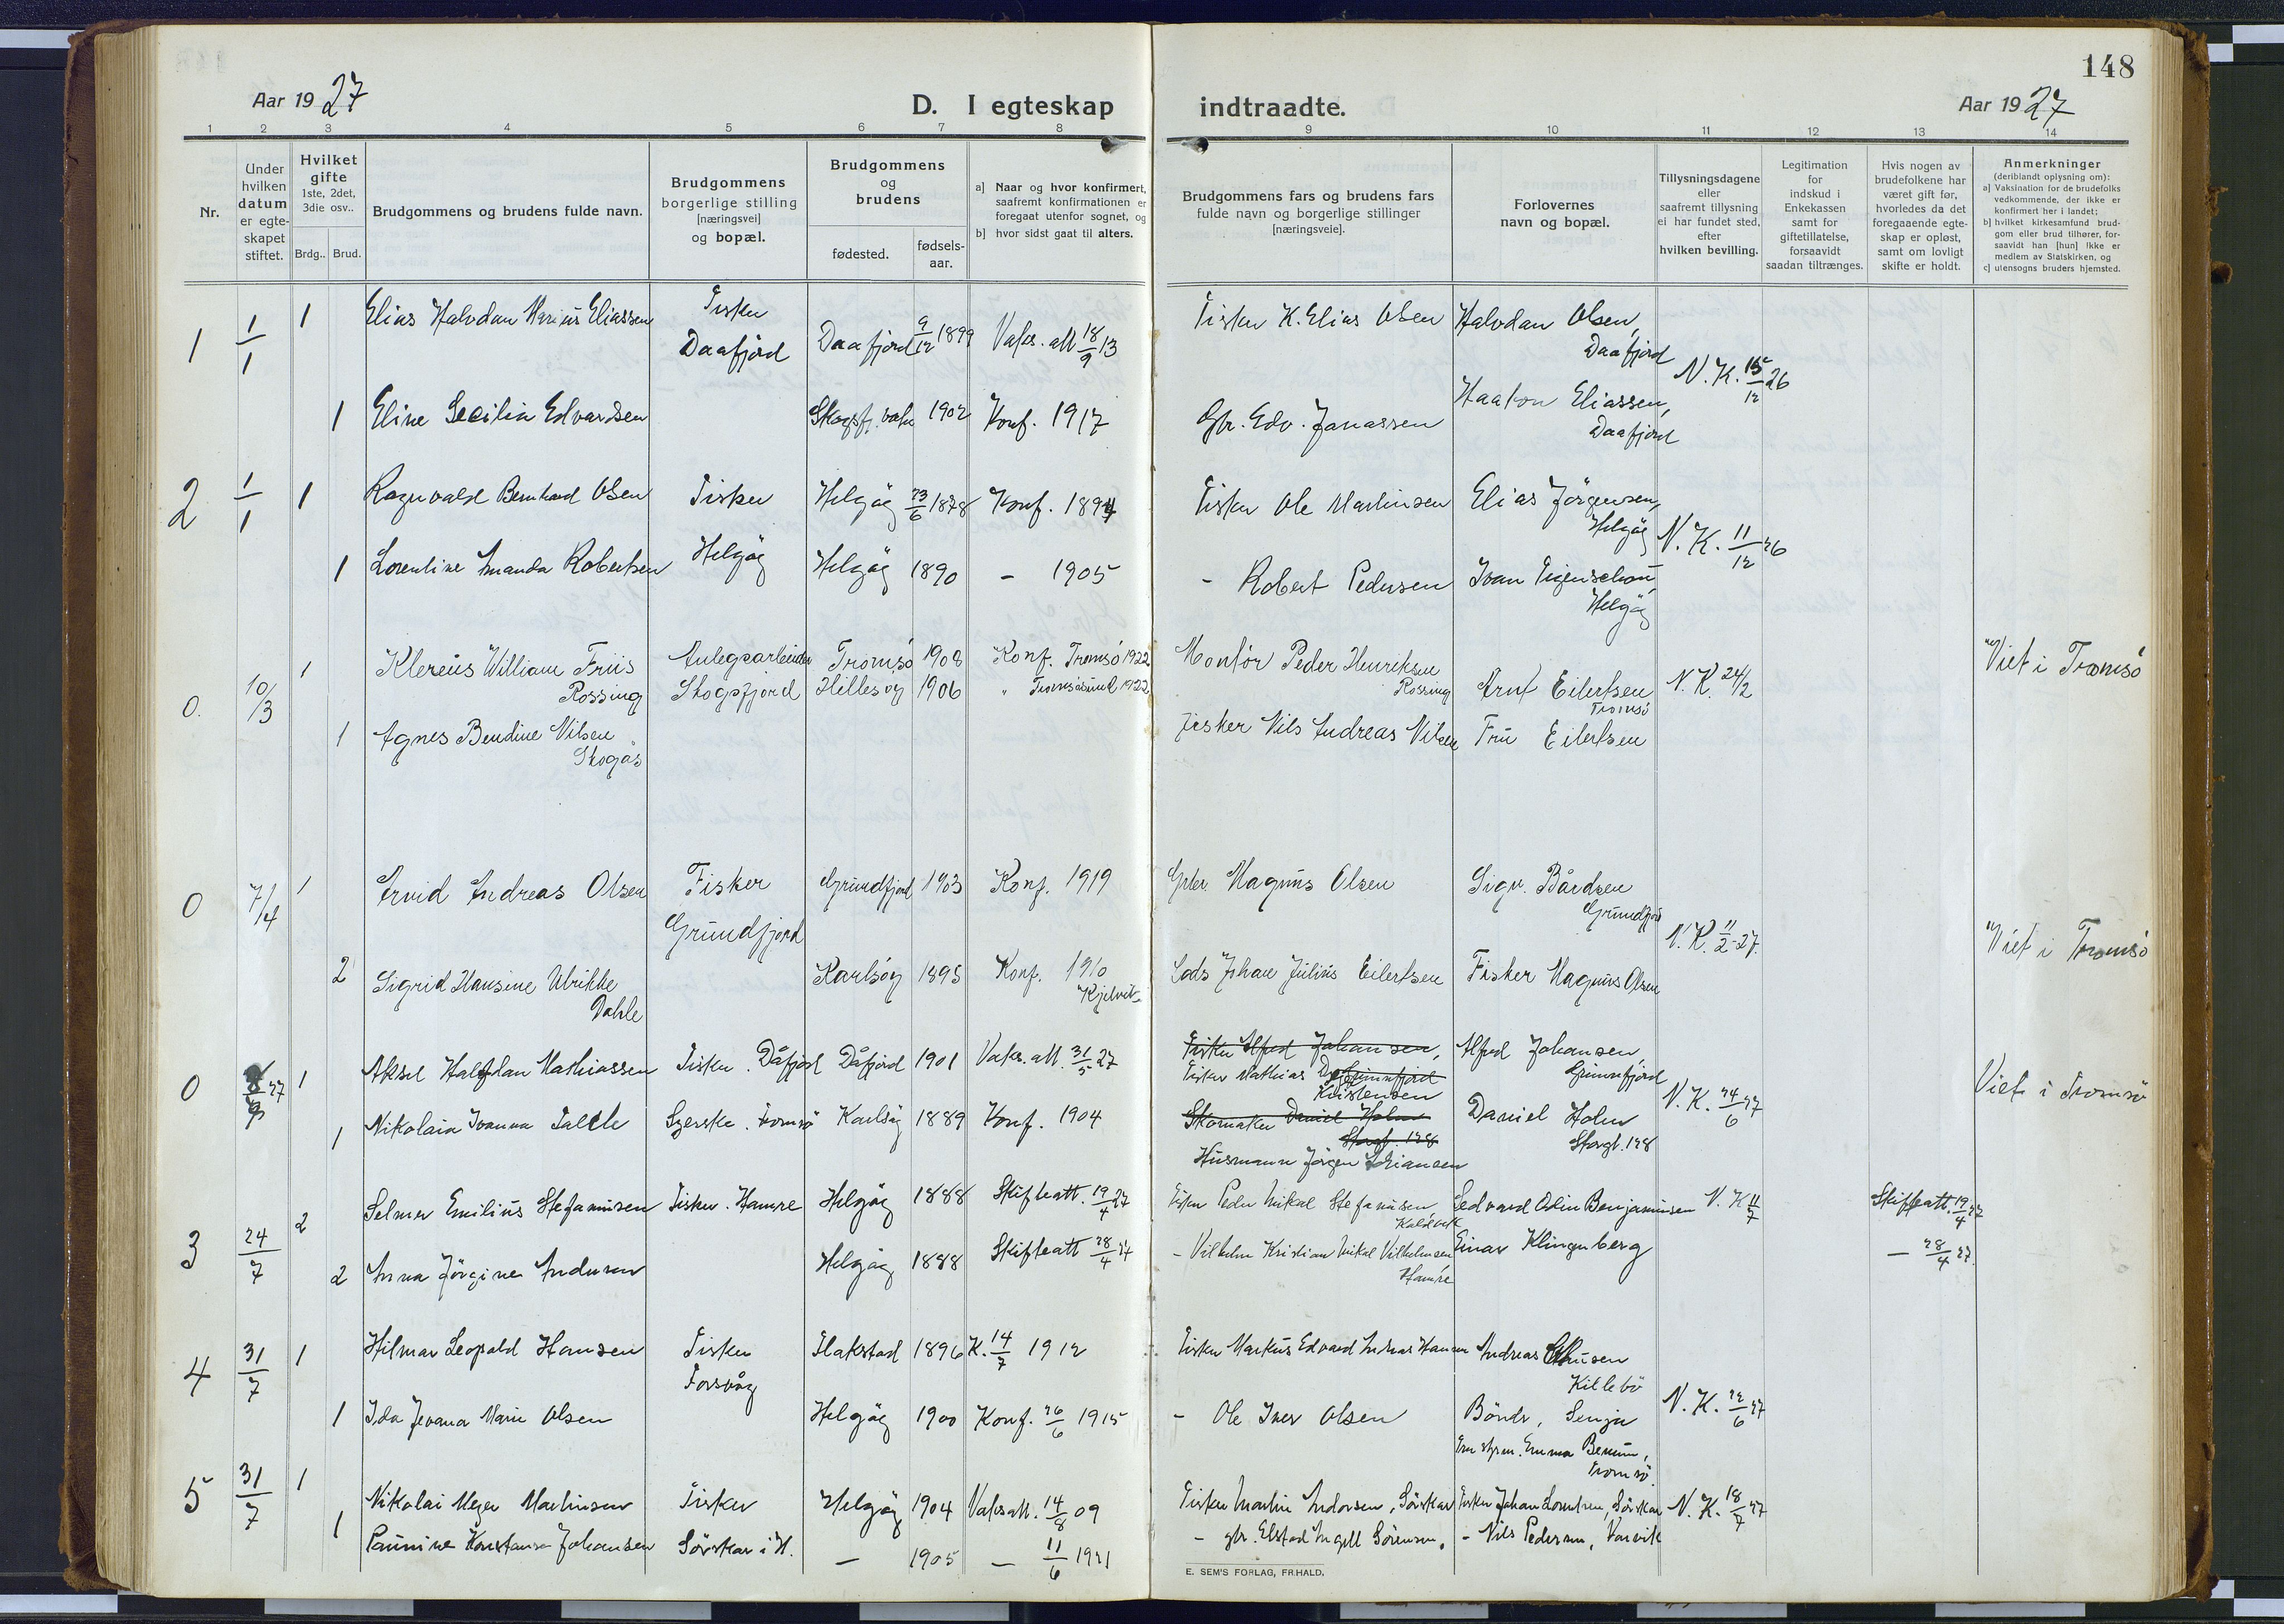 148
Aar 1927
D. I egteskap indtraadte.
Aar 1927
1 2 3 4 5 6 7 8 9 10 11 12 13 14
Nr.
Under hvilken datum er egte-skapet stiftet.
Hvilket gifte 1ste, 2det, 3die osv..
Brdg.. Brud.
Brudgommens og brudens fulde navn.
Brudgommens borgerlige stilling [næringsvei] og bopæl.
Brudgommens og brudens
fødested.
fødsels-aar.
a] Naar og hvor konfirmert, saafremt konfirmationen er foregaat utenfor sognet, og
b] hvor sidst gaat til alters.
Brudgommens fars og brudens fars fulde navn og borgerlige stillinger [næringsveie].
Forlovernes navn og bopæl.
Tillysningsdagene eller saafremt tillysning ei har fundet sted, efter hvilken bevilling.
Legitimation for indskud i Enkekassen samt for giftetillatelse, forsaavidt saadan tiltrænges.
Hvis nogen av brudefolkene har været gift før, hvorledes da det foregaaende egte-skap er opløst, samt om lovligt skifte er holdt.
Anmerkninger (deriblandt oplysning om):
a] Vaksination for de brudefolks vedkommende, der ikke er konfirmert her i landet;
b] hvilket kirkesamfund brud-gom eller brud tilhører, for-saavidt han [hun] ikke er medlem av Statskirken, og
c] utensogns bruders hjemsted.
1 1/1 1 Elias Halvdan Marius Eliassen Fisker Daafjord Daafjord 9/12 1899 Vaks. att 18/9 13 Fisker K. Elias Olsen Halvdan Olsen, Daafjord N. K. 15/12 26
1 Eline Secilia Edvardsen Skogsfj. vatn 1902 Konf. 1917 Gbr. Edv. Jonassen Haakon Eliassen, Daafjord
2 1/1 1 Ragnvald Bernhard Olsen Fisker Helgøy 23/6 1878 Konf. 1894 Fisker Ole Martinsen Elias Jørgensen, Helgøy N. K. 11/12 26
1 Lorentine Amanda Robertsen Helgøy Helgøy 1890 - 1905 - Robert Pedersen Ivan Figenschou, Helgøy
0. 10/3 1 Klereus William Friis Rossing Anlegsarbeider Tromsö 1908 Konf. Tromsö 1922 Montör Peder Henriksen Rossing Arnt Eilertsen Tromsö N. K. 24/2 Viet i Tromsö
Skogsfjord Hillesöy 1906 " Tromsösund 1922
1 Agnes Bendine Nilsen Skogås Fisker Nils Andreas Nilsen Fru Eilertsen
0 7/4 1 Arvid Andreas Olsen Fisker Grundfjord Grundfjord 1903 Konf. 1919 Gbr. Magnus Olsen Sigv. Bårdsen Grundfjord N. K. 11/2-27. Viet i Tromsö
2 Sigrid Hansine Ulrikke Dahle Karlsöy 1895 Konf. 1910 Kjelvik Lods Johan Julius Eilertsen Fisker Magnus Olsen
0 27 1 Aksel Halfdan Mathiassen Fisker. Dåfjord Dåfjord 1901 Vaks. att. 31/5 27 Fisker Alfred Johansen, Grunnfjord Alfred Johansen, Grunnfjord N. K. 24/6 27 Viet i Tromsø
Fisker Mathias Kristensen
1 Nikolaia Ivanna Tromsø Karlsøy 1889 Konf. 1904 Skomaker Daniel Holm Storgt. 128 Daniel Holm Storgt. 128
Husmann Jørgen
3 24/7 2 Selmer Emilius Stefanussen Fisker. Hamre Helgøy 1888 Skifteatt. 19/4 27 Fisker Peder Mikal Stefanusen, Edvard Odin Benjaminsen N. K. Skifteatt. 19/4 27
2 Anna Jørgine Andersen Helgøy 1888 Skifteatt 28/4 27 - Vilhelm Kristian Mikal Vilhelmsen Hamre Einar Klingenberg - 28/4 27.
4 31/7 1 Hilmar Leopold Hansen Fisker Torsvåg Flakstad 1896 K. 14/7 1912 Fisker Markus Edvard Hansen Andreas N. K. 22/6 27
1 Ida Jovana Marie Olsen Helgøy 1900 Konf. 26/6 1915 - Ole Iver Olsen Senja
Emma Tromsø.
5 31/7 1 Nikolai Meyer Martinsen Fisker Helgøy 1904 Vaks att. 14/8 09 Fisker Martin Andorsen, Sørskar Fisker Johan Lorentsen, Sørskar N. K. 18/7 27
1 Paunine Konstanse Johansen Sørskar i H. - 1905 - 11/6 1921 - gbr. Sørensen, - Nils Pedersen, Vanvik
E. SEM'S FORLAG, FR.HALD.